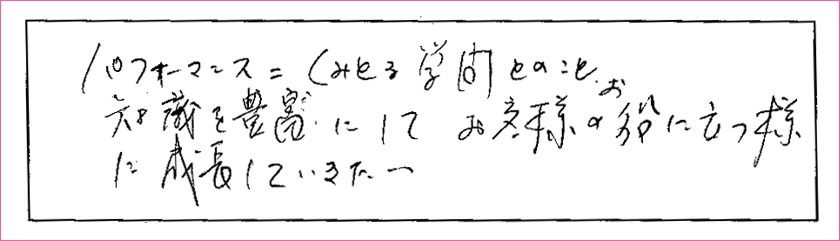 パフォーマンス=くみとる学問とのこと、
知識を豊富にして お客様のお役に立つ様
に成長していきたい